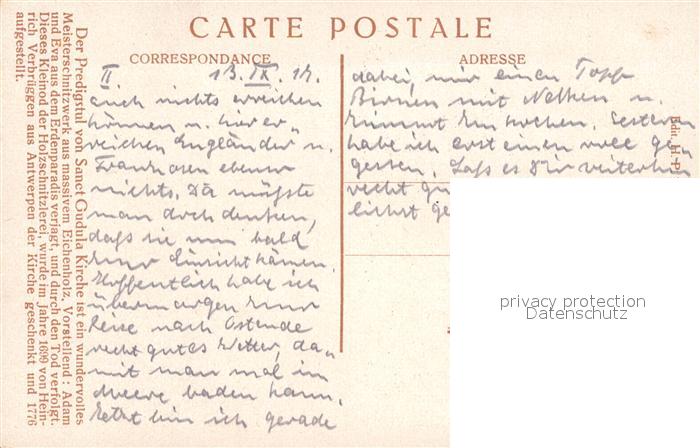 CARTE POSTALE
CORRESPONDANCE
ADRESSE
II. 13. IX. 17.
auch nichts erreichen
können u. hier er„
reichen Engländer u.
Franzosen ebenso
nichts. Da müßte
man doch denken,
daß sie nun bald
zur Einsicht kämen.
Hoffentlich habe ich
übermorgen zur
Reise nach Ostende
recht gutes Wetter, da„
mit man mal im
Meere baden kann.
Jetzt bin ich gerade
dabei, mir einen Topf
Birnen mit Nelken u.
Zimmt einkochen. Gestern
habe ich erst einen voll ge„
gessen. Laß es Dir weiterhin
recht gu
lichst ge
Der Predigstul von Sanct Gudula Kirche ist ein wundervolles
Meisterschnitzwerk aus massivem Eichenholz, Vorstellend : Adam
und Eva aus dem Erdenparadis verjagt, und durch den Tod verfolgt.
Dieses Kleinod der Holzschnitzlerei, wurde im Jahre 1699 von Hein-
rich Verbrüggen aus Antwerpen der Kirche geschenkt und 1776
aufgestellt.
Edit. H. P.
privacy protection
Datenschutz